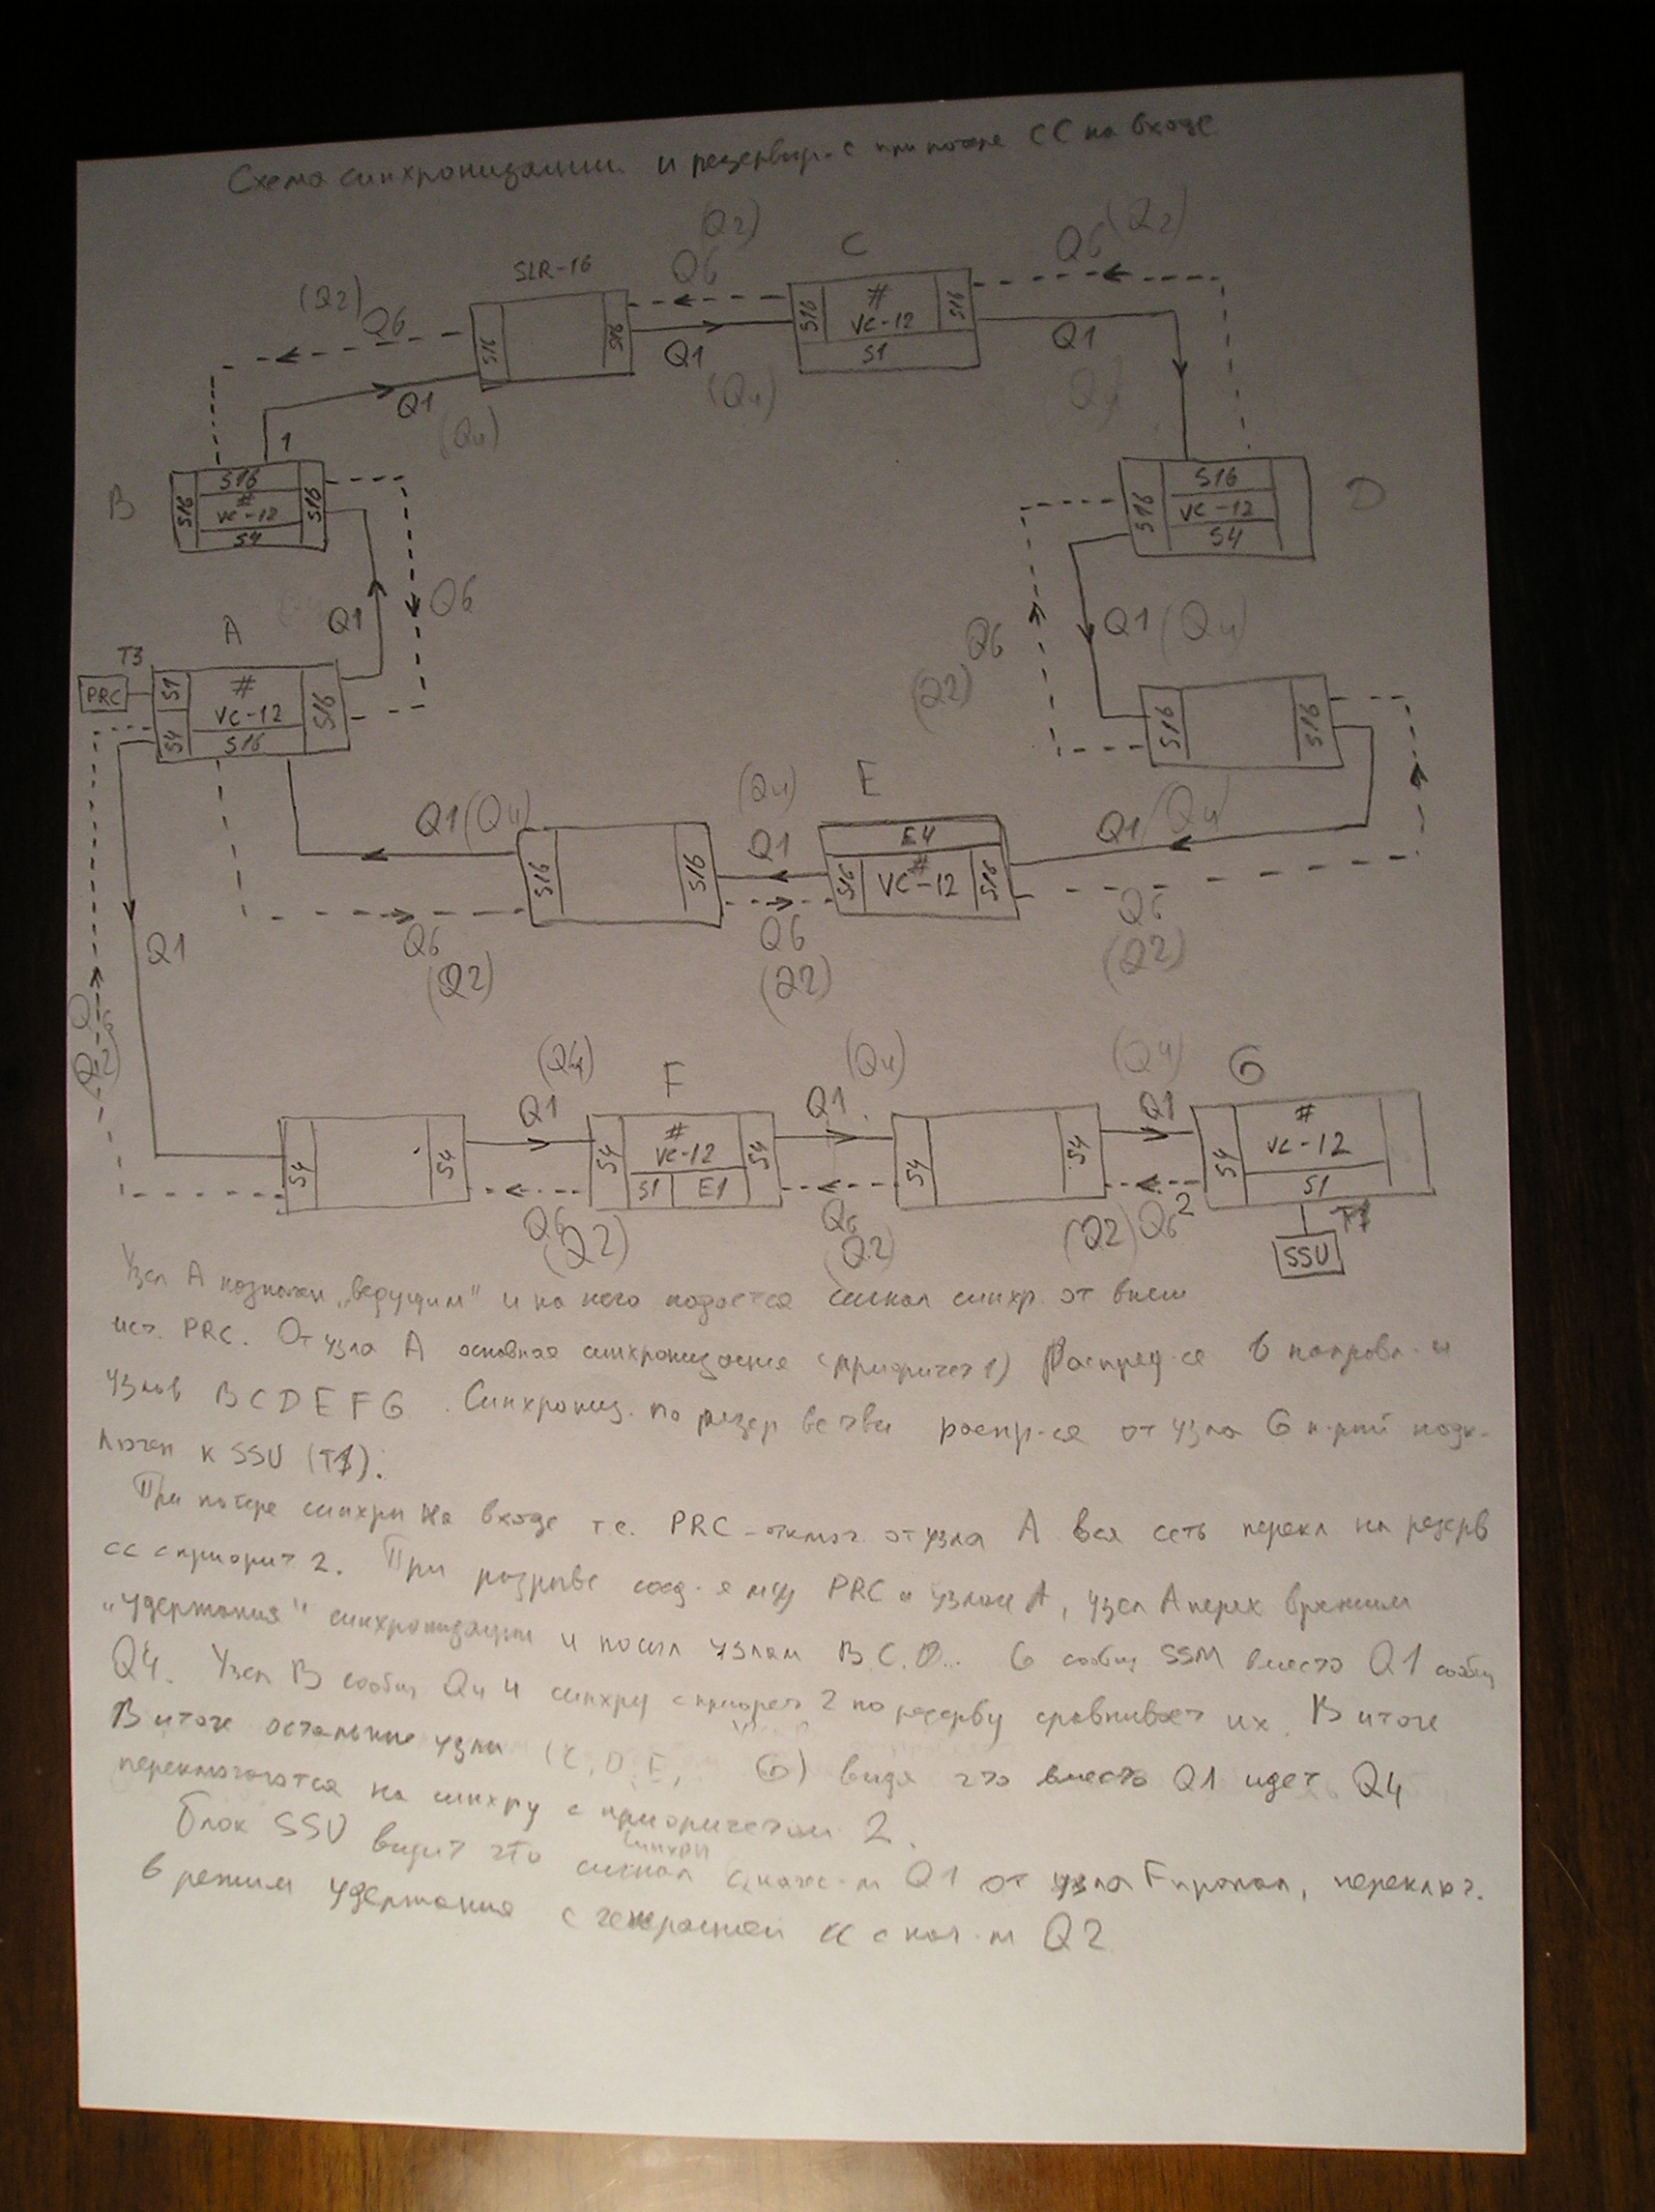 Схема синхронизации и резервир-е при потере СС на входе
(Q2)
C
Q6 (Q2)
SLR-16
Q6
(Q2)
Q6
S16
S16
S16
#
VC-12
S16
S1
Q1
Q1
(Q4)
Q1
(Q4)
Q4
1
B
S16
S16
#
VC-12
S16
S4
S16
S16
VC-12
S4
D
Q1
Q6
Q6
(Q2)
Q1 (Q4)
A
T3
PRC
S1
S4
#
VC-12
S16
S16
S16
S16
Q1 (Q4)
(Q4)
Q1
E
Q1 (Q4)
S16
S16
E4
S16
#
VC-12
S16
Q1
Q6
(Q2)
Q6
(Q2)
Q6
(Q2)
Q6
(Q2)
(Q4)
Q1
F
(Q4)
Q1
(Q4)
Q1
G
S4
S4
S4
#
VC-12
S4
S1
E1
S4
S4
S4
#
VC-12
S1
Q6
(Q2)
Q6
(Q2)
(Q2) Q6 2
T1
SSU
Узел А назначен "ведущим" и на него подается сигнал синхр. от внеш
ист. PRC. От узла А основная синхронизация (приоритет 1) Распред-ся в направл-и
узлов B C D E F G. Синхрониз. по резер ветви распр-ся от узла G к-рый подк-
лючен к SSU (T1).
При потере синхры на входе т.е. PRC - отключ. от узла А вся сеть перекл на резерв
сс с приорит 2. При разрыве соед-я мжу PRC и узлом А, узел А перех в режим
"удержания" синхронизации и посыл узлам B.C.D... G сообщ SSM вместо Q1 сообщ
Q4. Узел B сообщ Q4 и синхру с приорет 2 по резерву сравнивает их. В итоге
В итоге остальные узлы (C, D, E, G) видя что вместо Q1 идет Q4
переключаются на синхру с приоритетом 2.
Блок SSU видит что сигнал синхры с качес-м Q1 от узла F пропал, переключ.
в режим удержания с генерацией сс с кач-м Q2